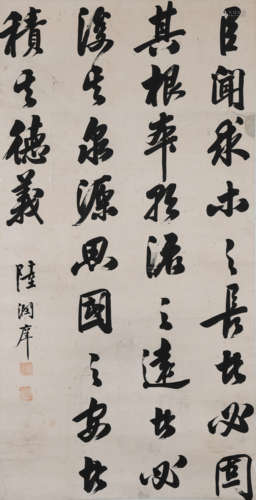 臣聞求木之長者必固
其根本欲流之遠者必
浚其泉源思國之安者
積其德義
陸潤庠